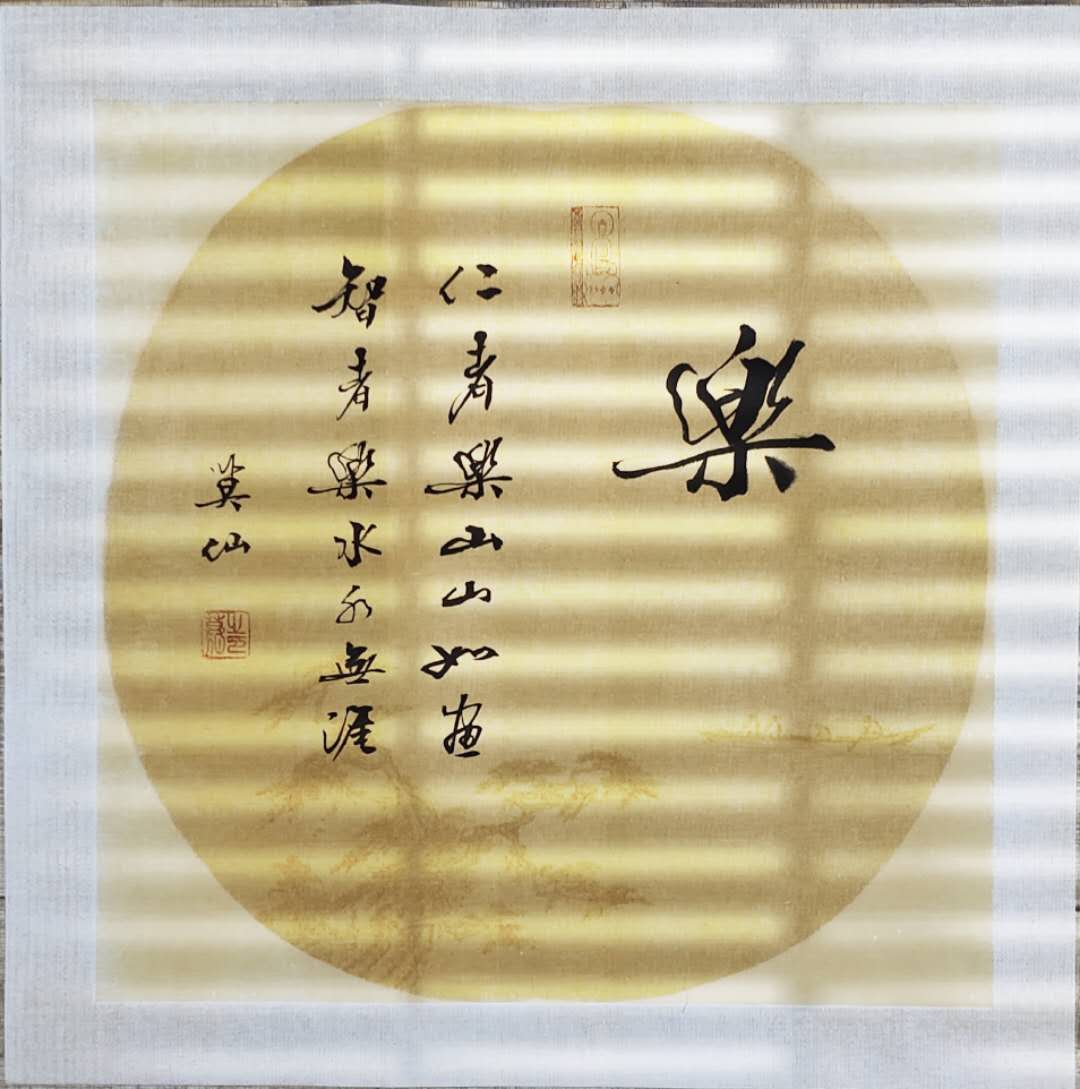 樂
仁者樂山山如畫
智者樂水水無涯
莫仙